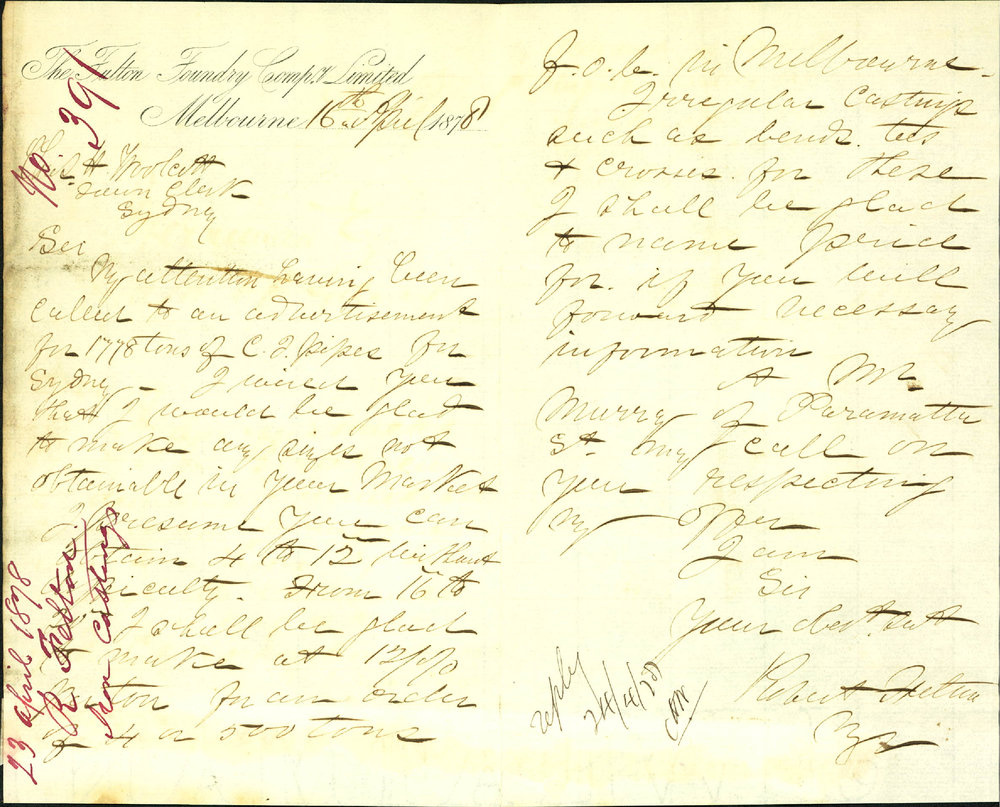 The Fulton Foundry Compy. Limited
Melbourne 16th April 1878
H. Woolcott
Town Clerk
Sydney
Sir
My attention having been
called to an advertisement
for 1778 tons of C. I. pipes for
Sydney - I wired you
that I would be glad
to make any sizes not
obtainable in your Market
I presume you can
obtain 4 to 12 without
difficulty. From 16 to
I shall be glad
to make at
ton for an order
of 4 or 500 tons
f.o.b. in Melbourne.
Irregular Castings
such as bends. tees
& crosses. for these
I shall be glad
to name price
for. if you will
forward necessary
information
A Mr
Murray of Paramatta
St. may call on
you respecting
my offer
I am
Sir
Your obedt. Svt
Robert
Mgr
No 391
23 April 1878
R
Iron Castings
reply
24/4/78